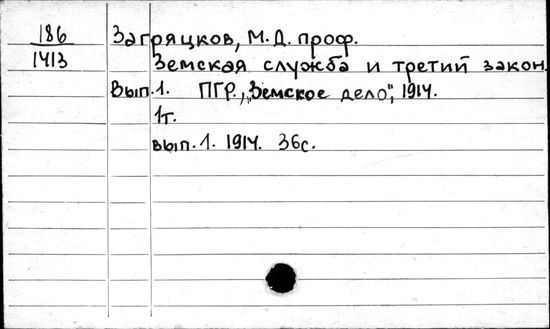 186
1413
Загряцков, М.Д. проф.
Земская служба и третий закон.
Вып.1. ПГР., „Земское дело", 1914.
1т.
вып.1. 1914. 36с.